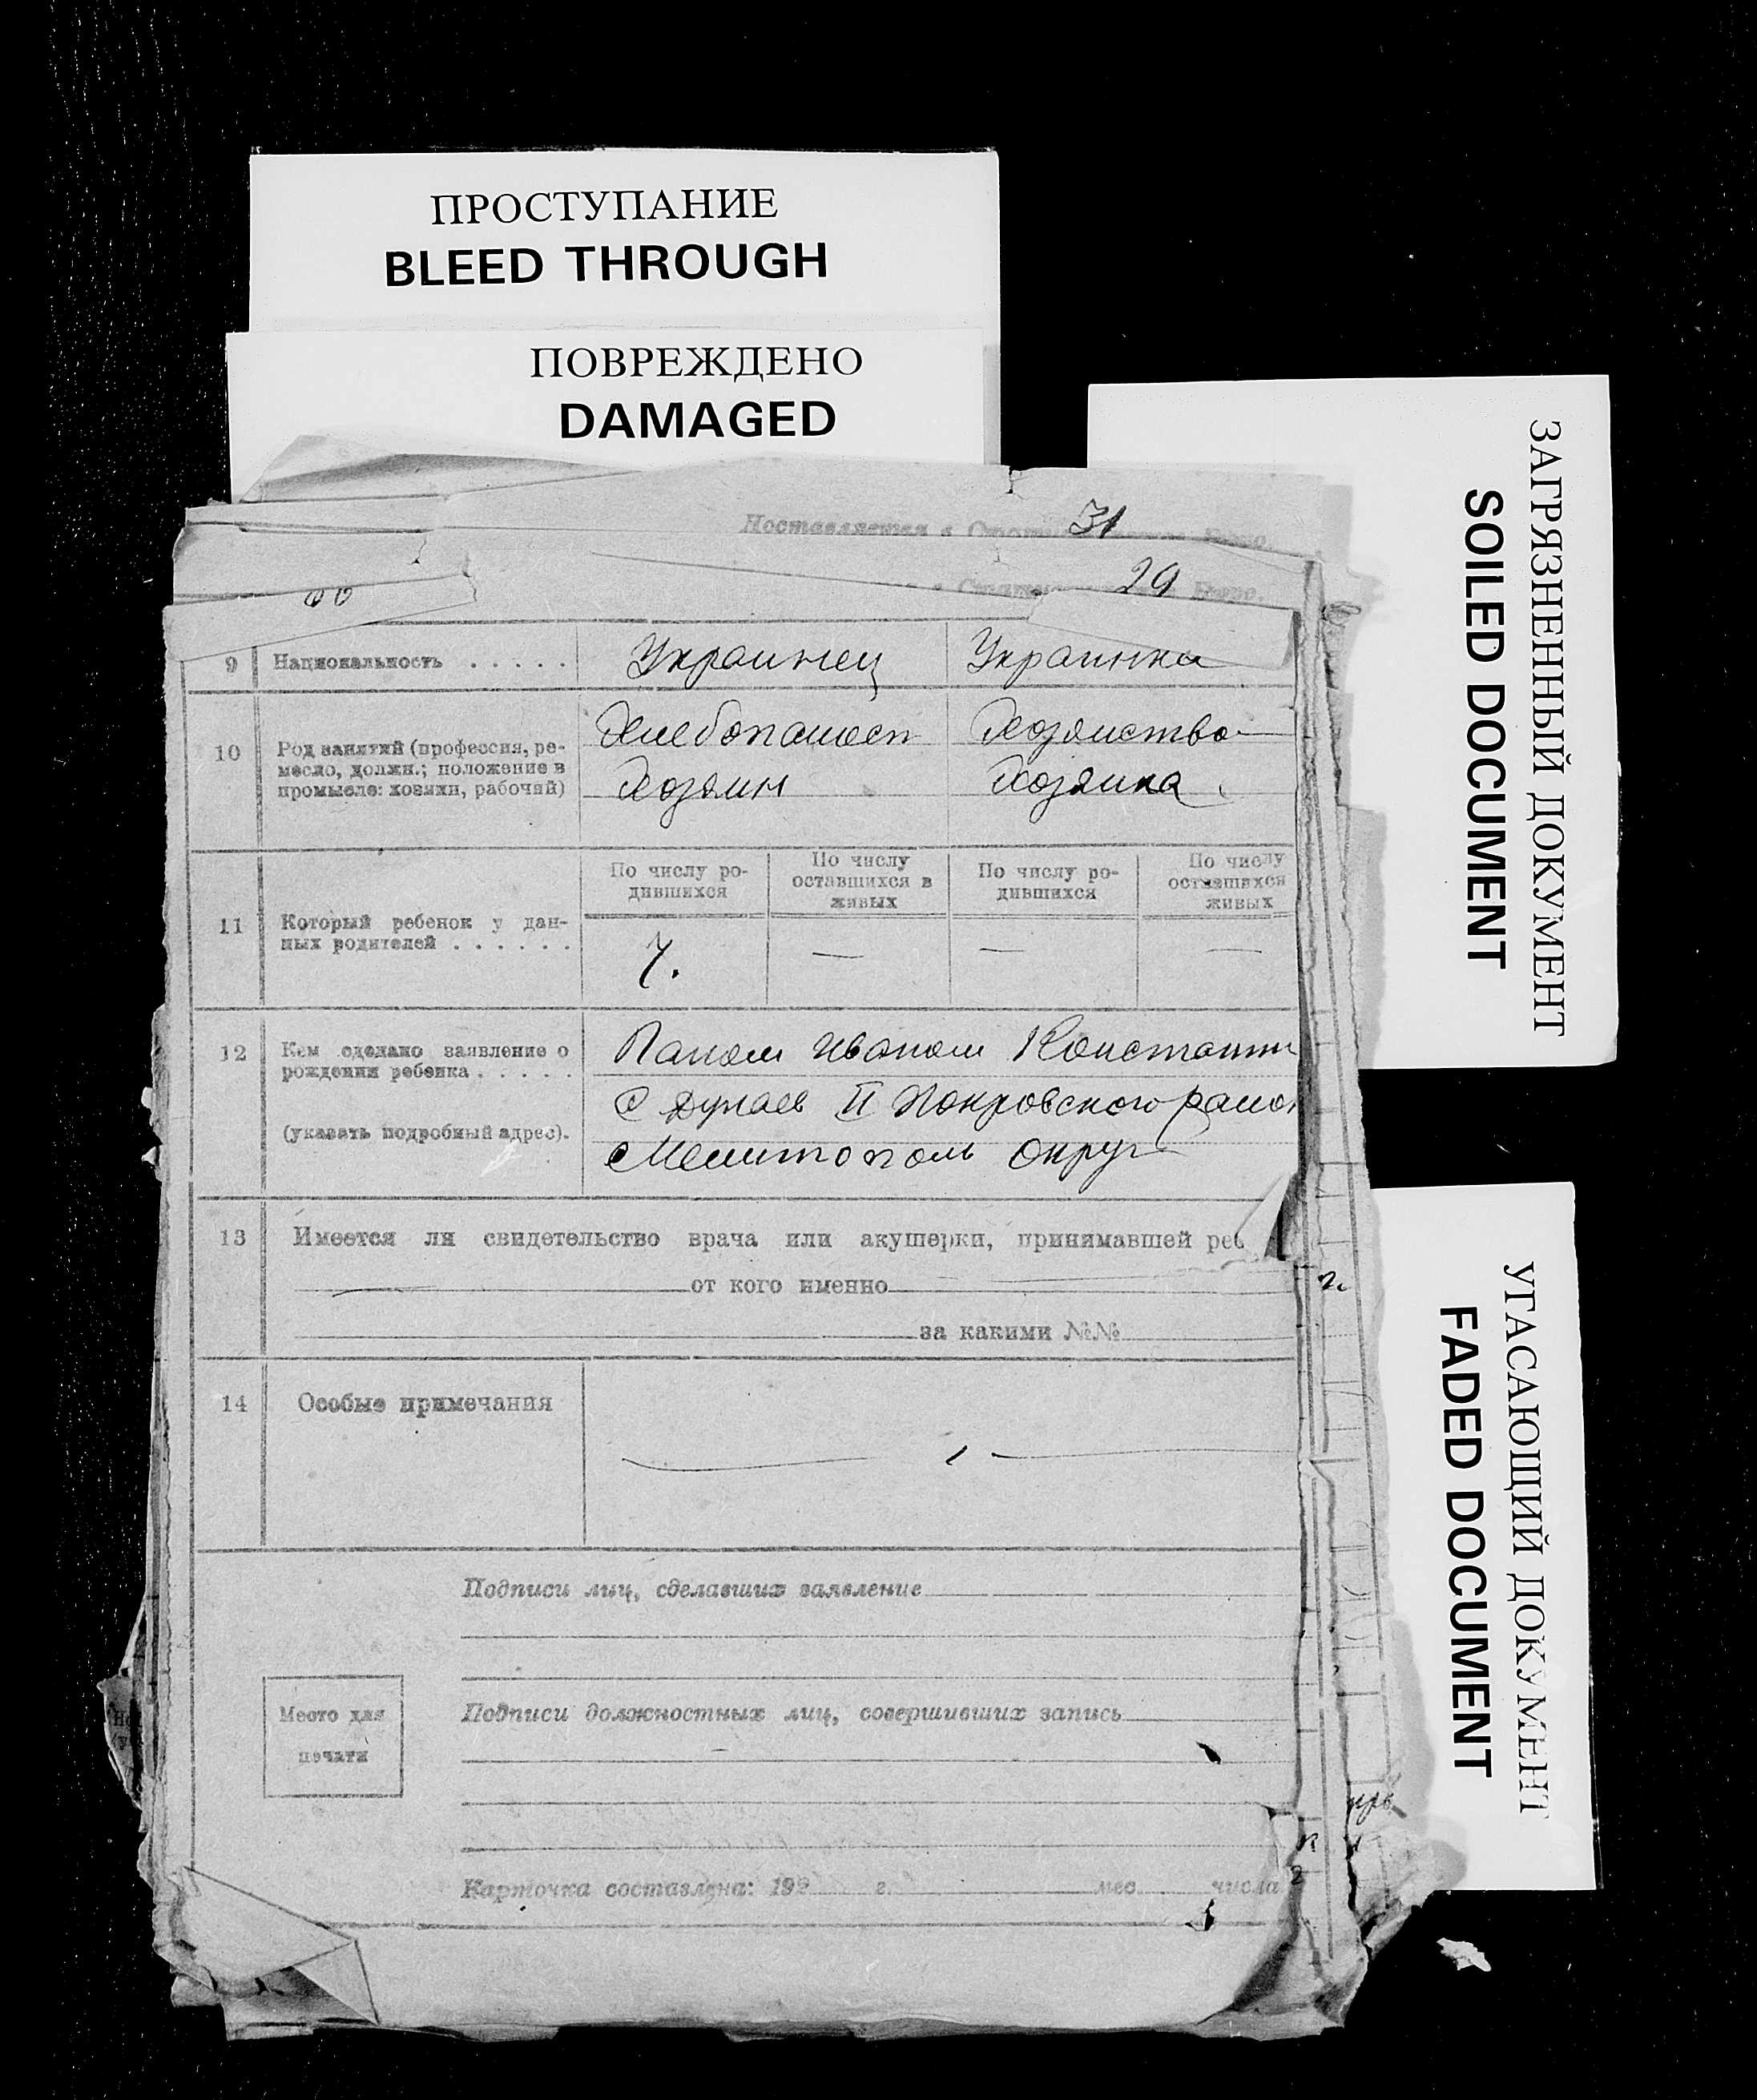 ПРОСТУПАНИЕ
BLEED THROUGH
ПОВРЕЖДЕНО
DAMAGED
ЗАГРЯЗНЕННЫЙ ДОКУМЕНТ
SOILED DOCUMENT
УГАСАЮЩИЙ ДОКУМЕНТ
FADED DOCUMENT
31
29
9 Национальность . . . . . Украинец Украинка
10 Род занятий (профессия, ре-
месло, должн.; положение в
промысле: хозяин, рабочий)
Хозяин
Хозяйство
Хозяйка
11 Который ребенок у дан-
ных родителей . . . . . .
По числу ро-
дившихся
По числу
оставшихся в
живых
По числу ро-
дившихся
По числу
оставшихся
живых
7. — — —
12 Кем сделано заявление о
рождении ребенка . . . . .
(указать подробный адрес).
Иваном Константин
с Дунаев II Покровского район
Мелитополь Округ
13 Имеется ли свидетельство врача или акушерки, принимавшей реб
от кого именно
за какими №№
14 Особые примечания
Подписи лиц, сделавших заявление
Место для
печати
Подписи должностных лиц, совершивших запись
Карточка составлена: 192 г. мес. числа